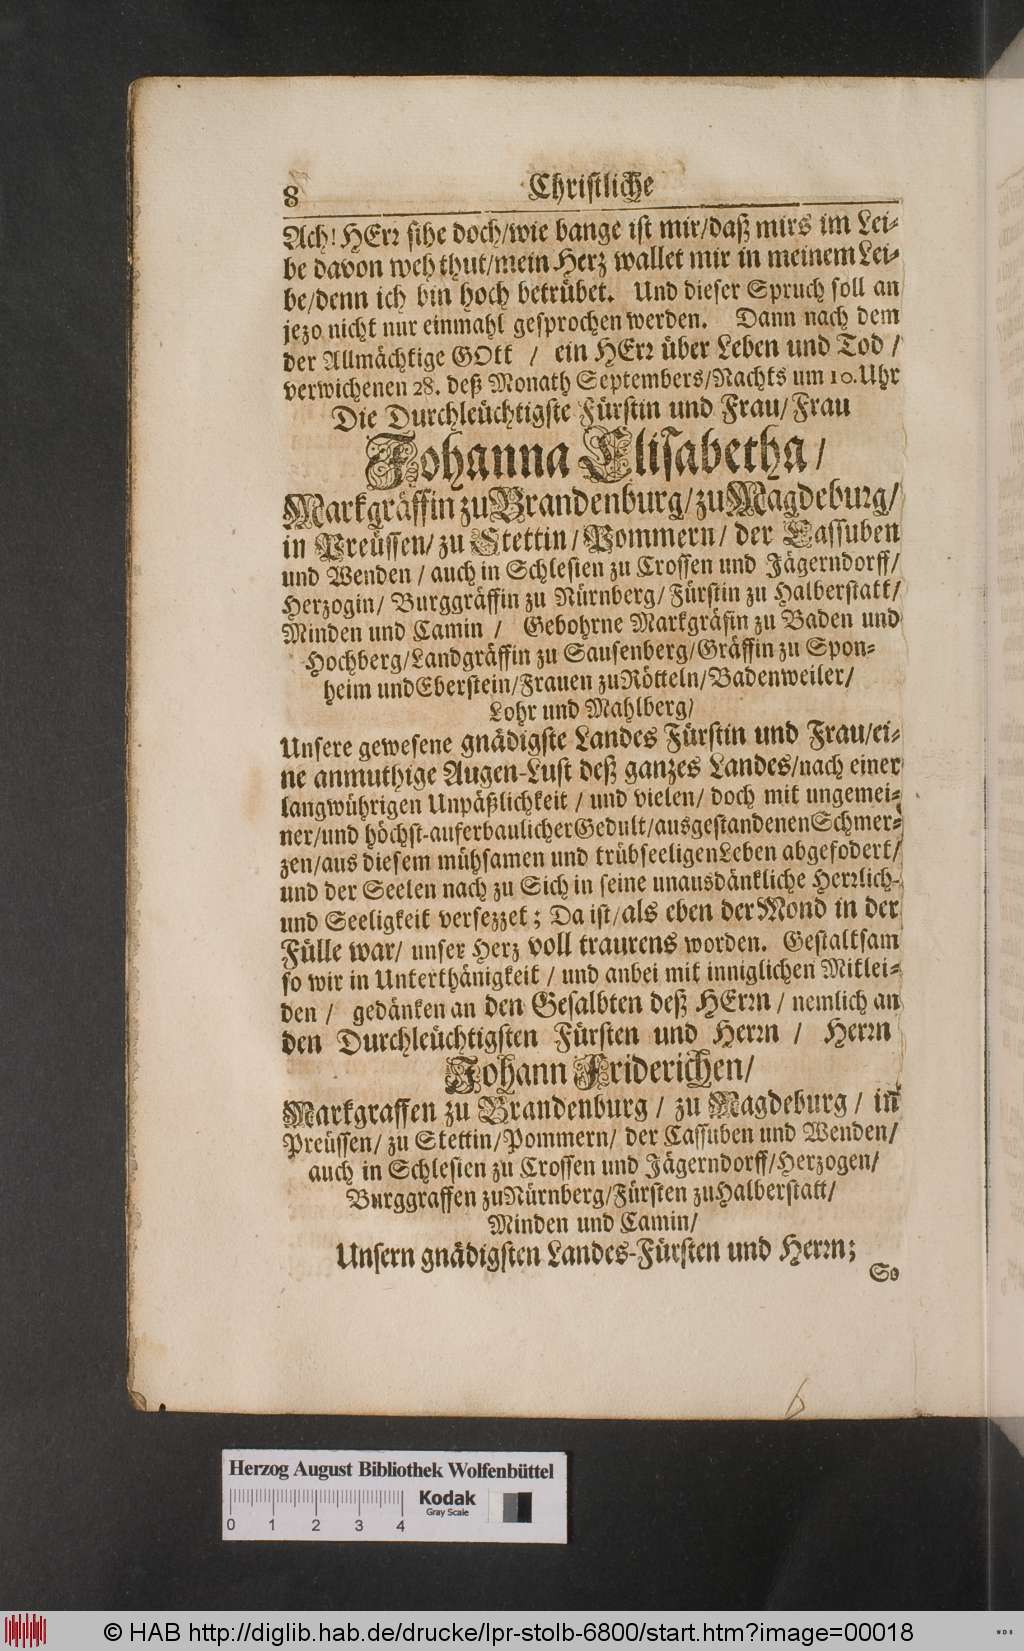 8 Christliche
Ach! HErr sihe doch/wie bange ist mir/daß mirs im Lei-
be davon weh thut/mein Herz wallet mir in meinem Lei-
be/denn ich bin hoch betrübet. Und dieser Spruch soll an
jezo nicht nur einmahl gesprochen werden. Dann nach dem
der Allmächtige GOtt / ein HErr über Leben und Tod /
verwichenen 28. deß Monath Septembers/Nachts um 10. Uhr
Die Durchleüchtigste Fürstin und Frau/Frau
Johanna Elisabetha/
Markgräffin zu Brandenburg/zu Magdeburg/
in Preüssen/zu Stettin/Pommern/ der Cassuben
und Wenden/auch in Schlesien zu Crossen und Jägerndorff/
Herzogin/ Burggräffin zu Nürnberg/Fürstin zu Halberstatt/
Minden und Camin / Gebohrne Markgräfin zu Baden und
Hochberg/Landgräffin zu Sausenberg/Gräffin zu Spon-
heim und Eberstein/Frauen zu Rötteln/Badenweiler/
Lohr und Mahlberg/
Unsere gewesene gnädigste Landes Fürstin und Frau/ei-
ne anmuthige Augen-Lust deß ganzes Landes/nach einer
langwührigen Unpäßlichkeit / und vielen/ doch mit ungemei-
ner/und höchst-auferbaulicher Gedult/ausgestandenen Schmer-
zen/aus diesem mühsamen und trübseeligen Leben abgefodert/
und der Seelen nach zu Sich in seine unausdänkliche Herrlich-
und Seeligkeit versezzet; Da ist/als eben der Mond in der
Fülle war/ unser Herz voll traurens worden. Gestaltsam
so wir in Unterthänigkeit / und anbei mit inniglichen Mitlei-
den / gedänken an den Gesalbten deß HErrn / nemlich an
den Durchleüchtigsten Fürsten und Herrn / Herrn
Johann Friderichen/
Markgraffen zu Brandenburg / zu Magdeburg / in
Preüssen/ zu Stettin/Pommern/ der Cassuben und Wenden/
auch in Schlesien zu Crossen und Jägerndorff/Herzogen/
Burggraffen zu Nürnberg/Fürsten zu Halberstatt/
Minden und Camin/
Unsern gnädigsten Landes-Fürsten und Herrn;
So
Herzog August Bibliothek Wolfenbüttel
Kodak
Gray Scale
0 1 2 3 4
© HAB http://diglib.hab.de/drucke/lpr-stolb-6800/start.htm?image=00018
WDB